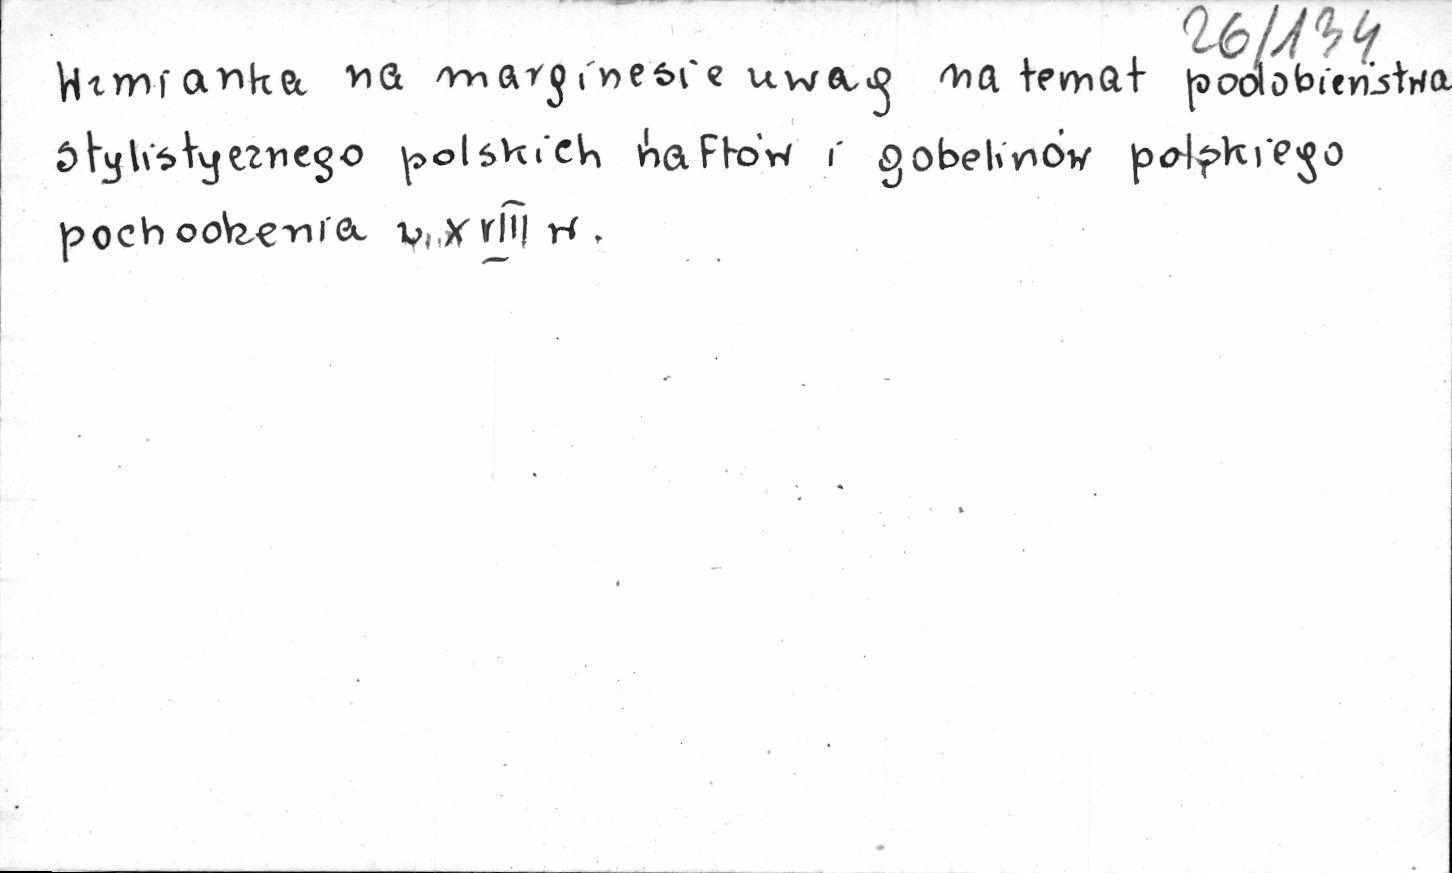 26/134
Wzmianka na marginesie uwag na temat podobieństwa
stylistycznego polskich haftów i gobelinów polskiego
pochodzenia z XVIII w.